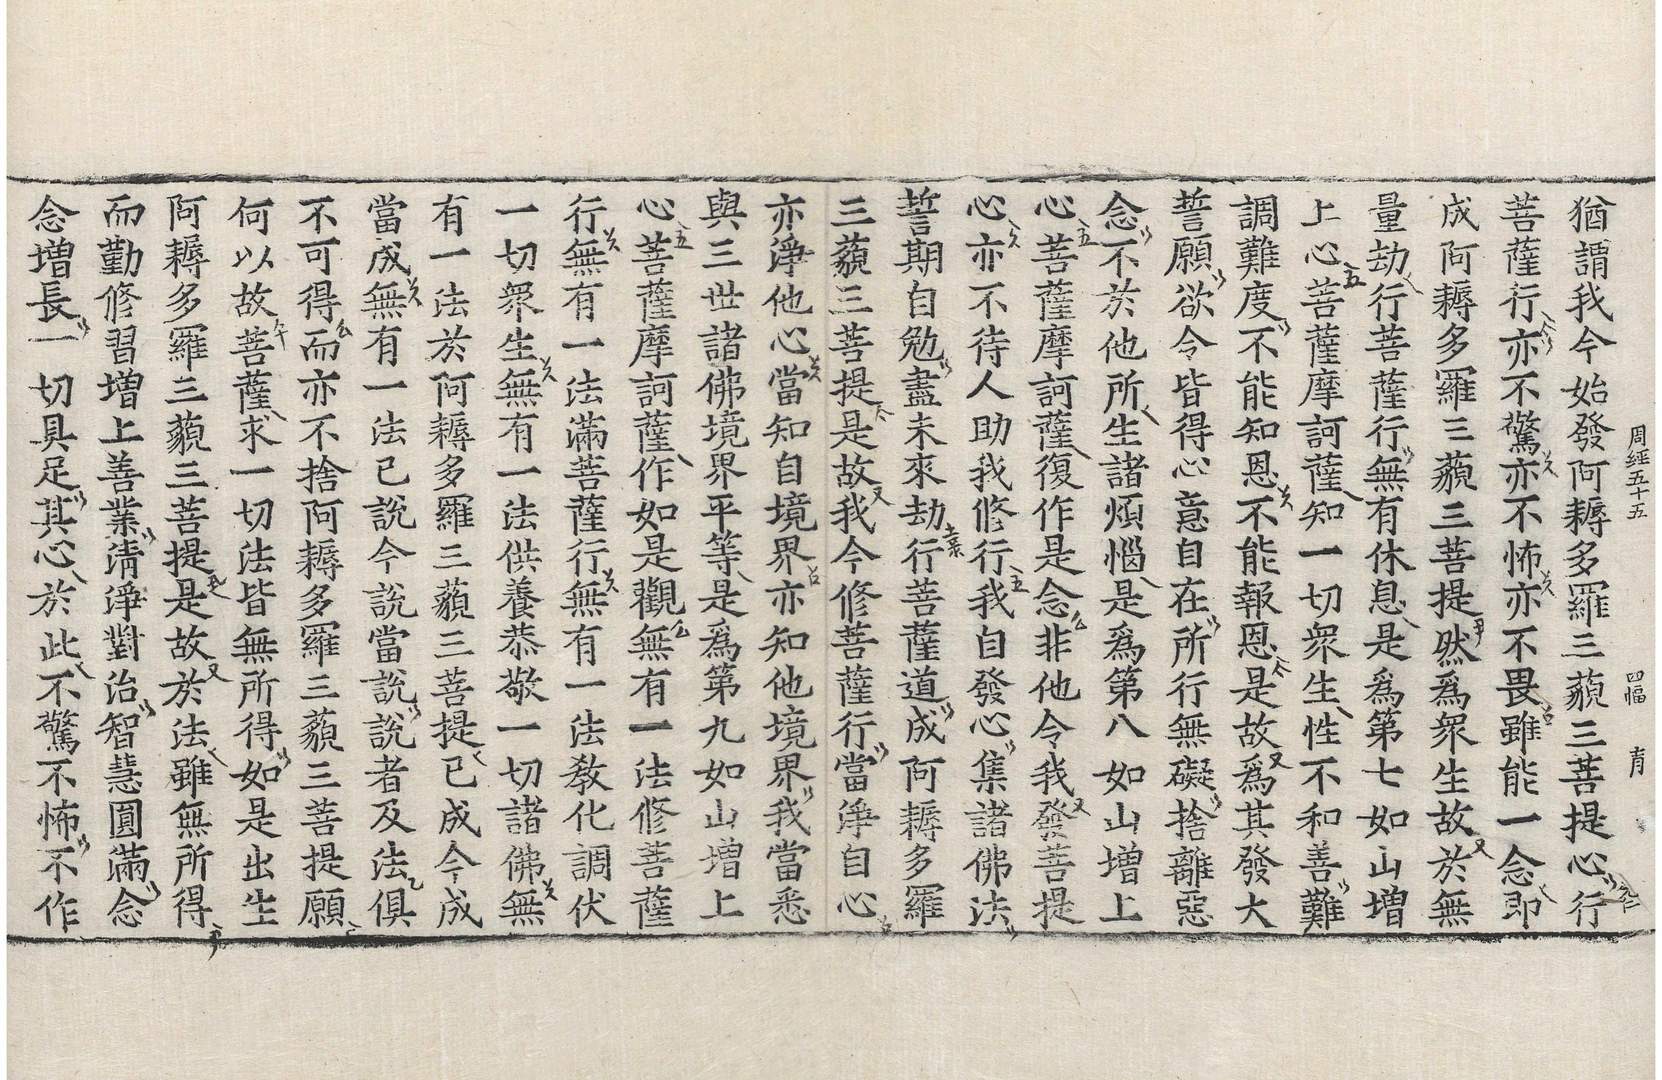 周經五十五 四幅 青
猶謂我今始發阿耨多羅三藐三菩提心行
菩薩行亦不驚亦不怖亦不畏雖能一念即
成阿耨多羅三藐三菩提然爲衆生故於無
量劫行菩薩行無有休息是爲第七如山增
上心菩薩摩訶薩知一切衆生性不和善難
調難度不能知恩不能報恩是故爲其發大
誓願欲令皆得心意自在所行無礙捨離惡
念不於他所生諸煩惱是爲第八如山增上
心菩薩摩訶薩復作是念非他令我發菩提
心亦不待人助我修行我自發心集諸佛法
誓期自勉盡未來劫行菩薩道成阿耨多羅
三藐三菩提是故我今修菩薩行當淨自心
亦淨他心當知自境界亦知他境界我當悉
與三世諸佛境界平等是爲第九如山增上
心菩薩摩訶薩作如是觀無有一法修菩薩
行無有一法滿菩薩行無有一法教化調伏
一切衆生無有一法供養恭敬一切諸佛無
有一法於阿耨多羅三藐三菩提已成今成
當成無有一法已說今說當說說者及法俱
不可得而亦不捨阿耨多羅三藐三菩提願
何以故菩薩求一切法皆無所得如是出生
阿耨多羅三藐三菩提是故於法雖無所得
而勤修習增上善業清淨對治智慧圓滿念
念增長一切具足其心於此不驚不怖不作